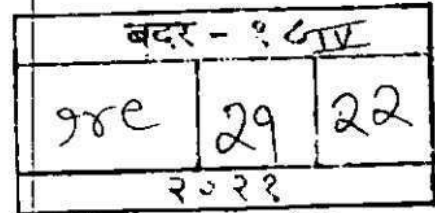 बदर - १८ IV
१४९ २१ २२
२०२१